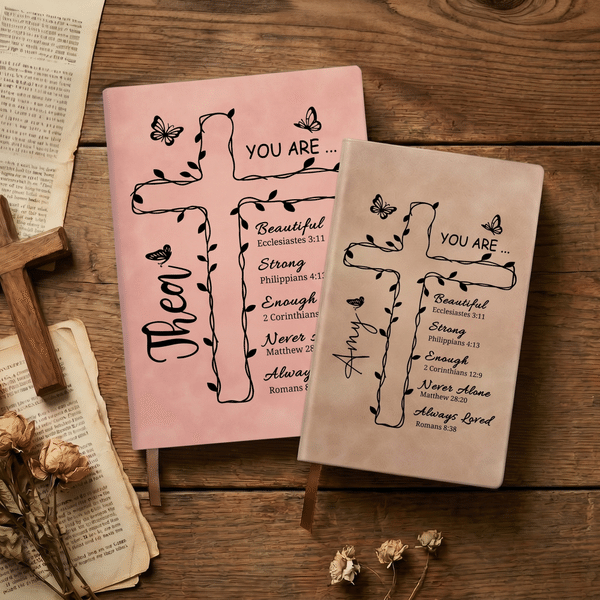 YOU ARE ...
Beautiful
Ecclesiastes 3:11
Strong
Philippians 4:13
Enough
2 Corinthians
Never
Matthew 28
Always
Romans 8
Thea
YOU ARE ...
Beautiful
Ecclesiastes 3:11
Strong
Philippians 4:13
Enough
2 Corinthians 12:9
Never Alone
Matthew 28:20
Always Loved
Romans 8:38
Amy